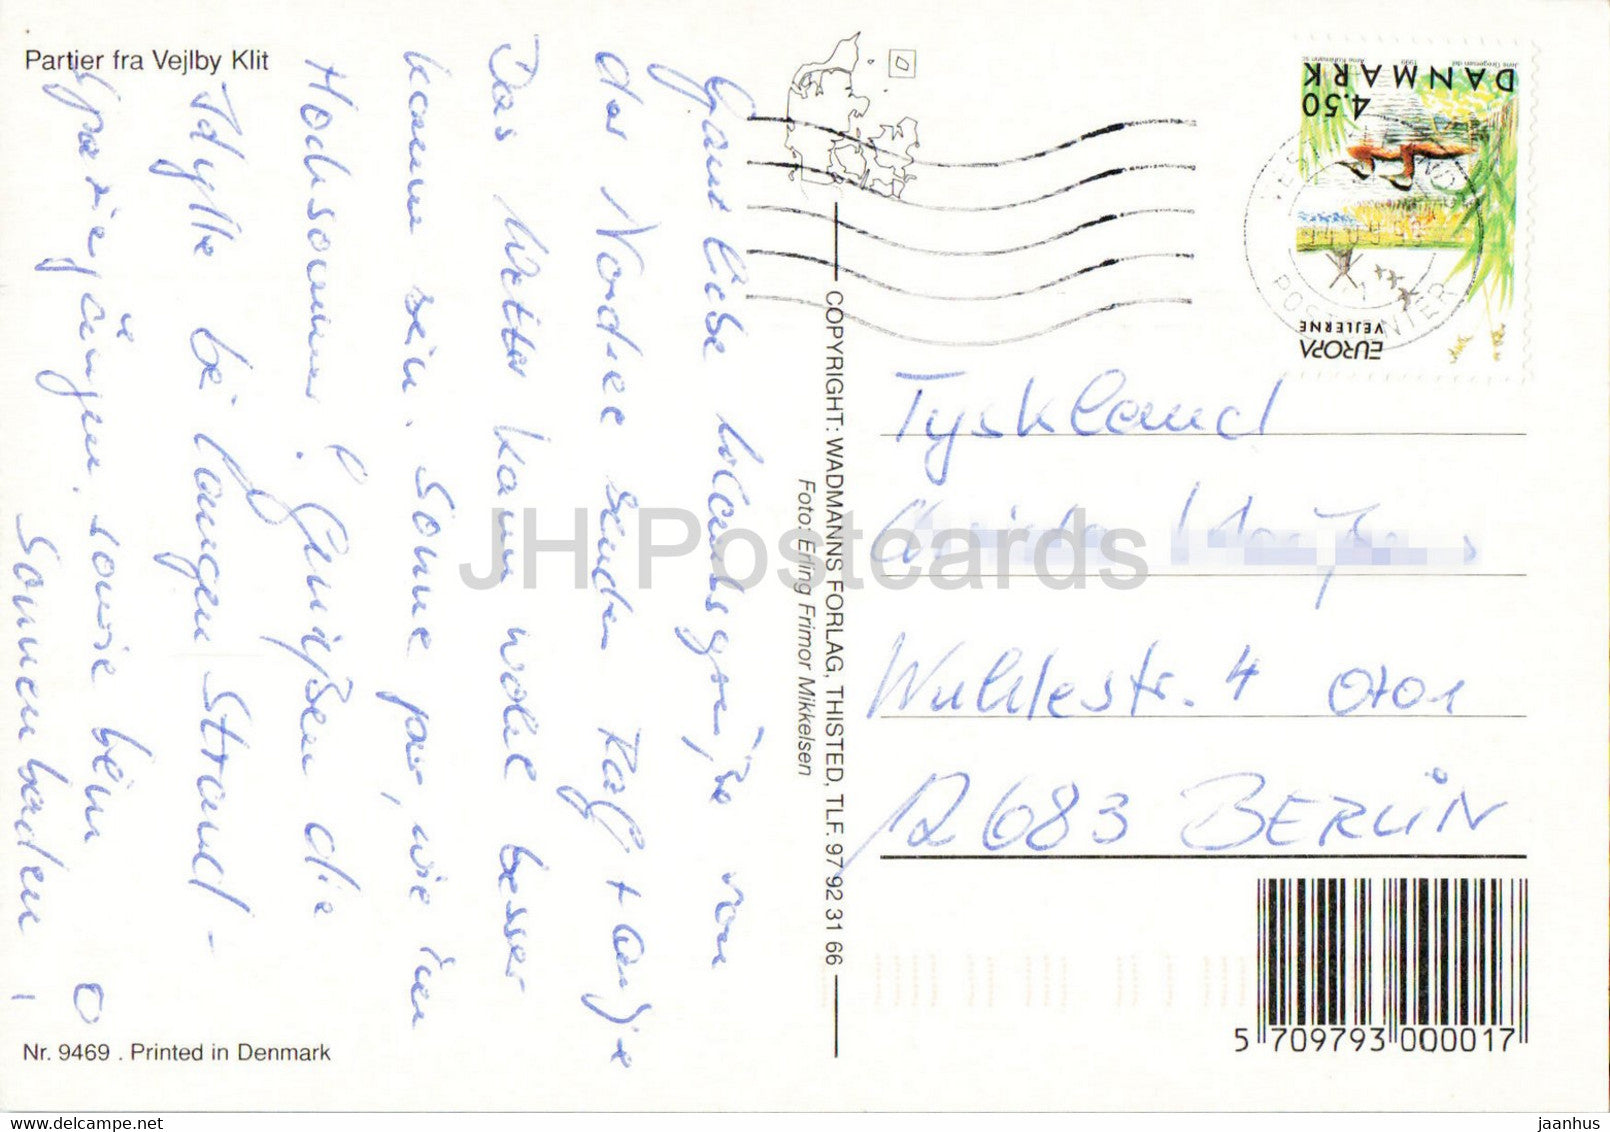 Partier fra Vejlby Klit
Ganz liebe Urlaubsgrüße von
der Nordsee senden Ralf + Antje
Das Wetter kann wohl besser
kaum sein. Sonne pur, wie im
Hochsommer! Genießen die
Idylle bei langen Strand-
spaziergängen, sowie beim
Sonnenbaden,
Nr. 9469 . Printed in Denmark
COPYRIGHT: WADMANNS FORLAG, THISTED, TLF. 97 92 31 66
Foto: Erling Frimor Mikkelsen
DANMARK
4.50
1999
EUROPA
VEJLERNE
POSTCENTER
Tyskland
Wuhlestr. 4 0701
12683 BERLIN
5 709793 000017
JH Postcards
jaanhus